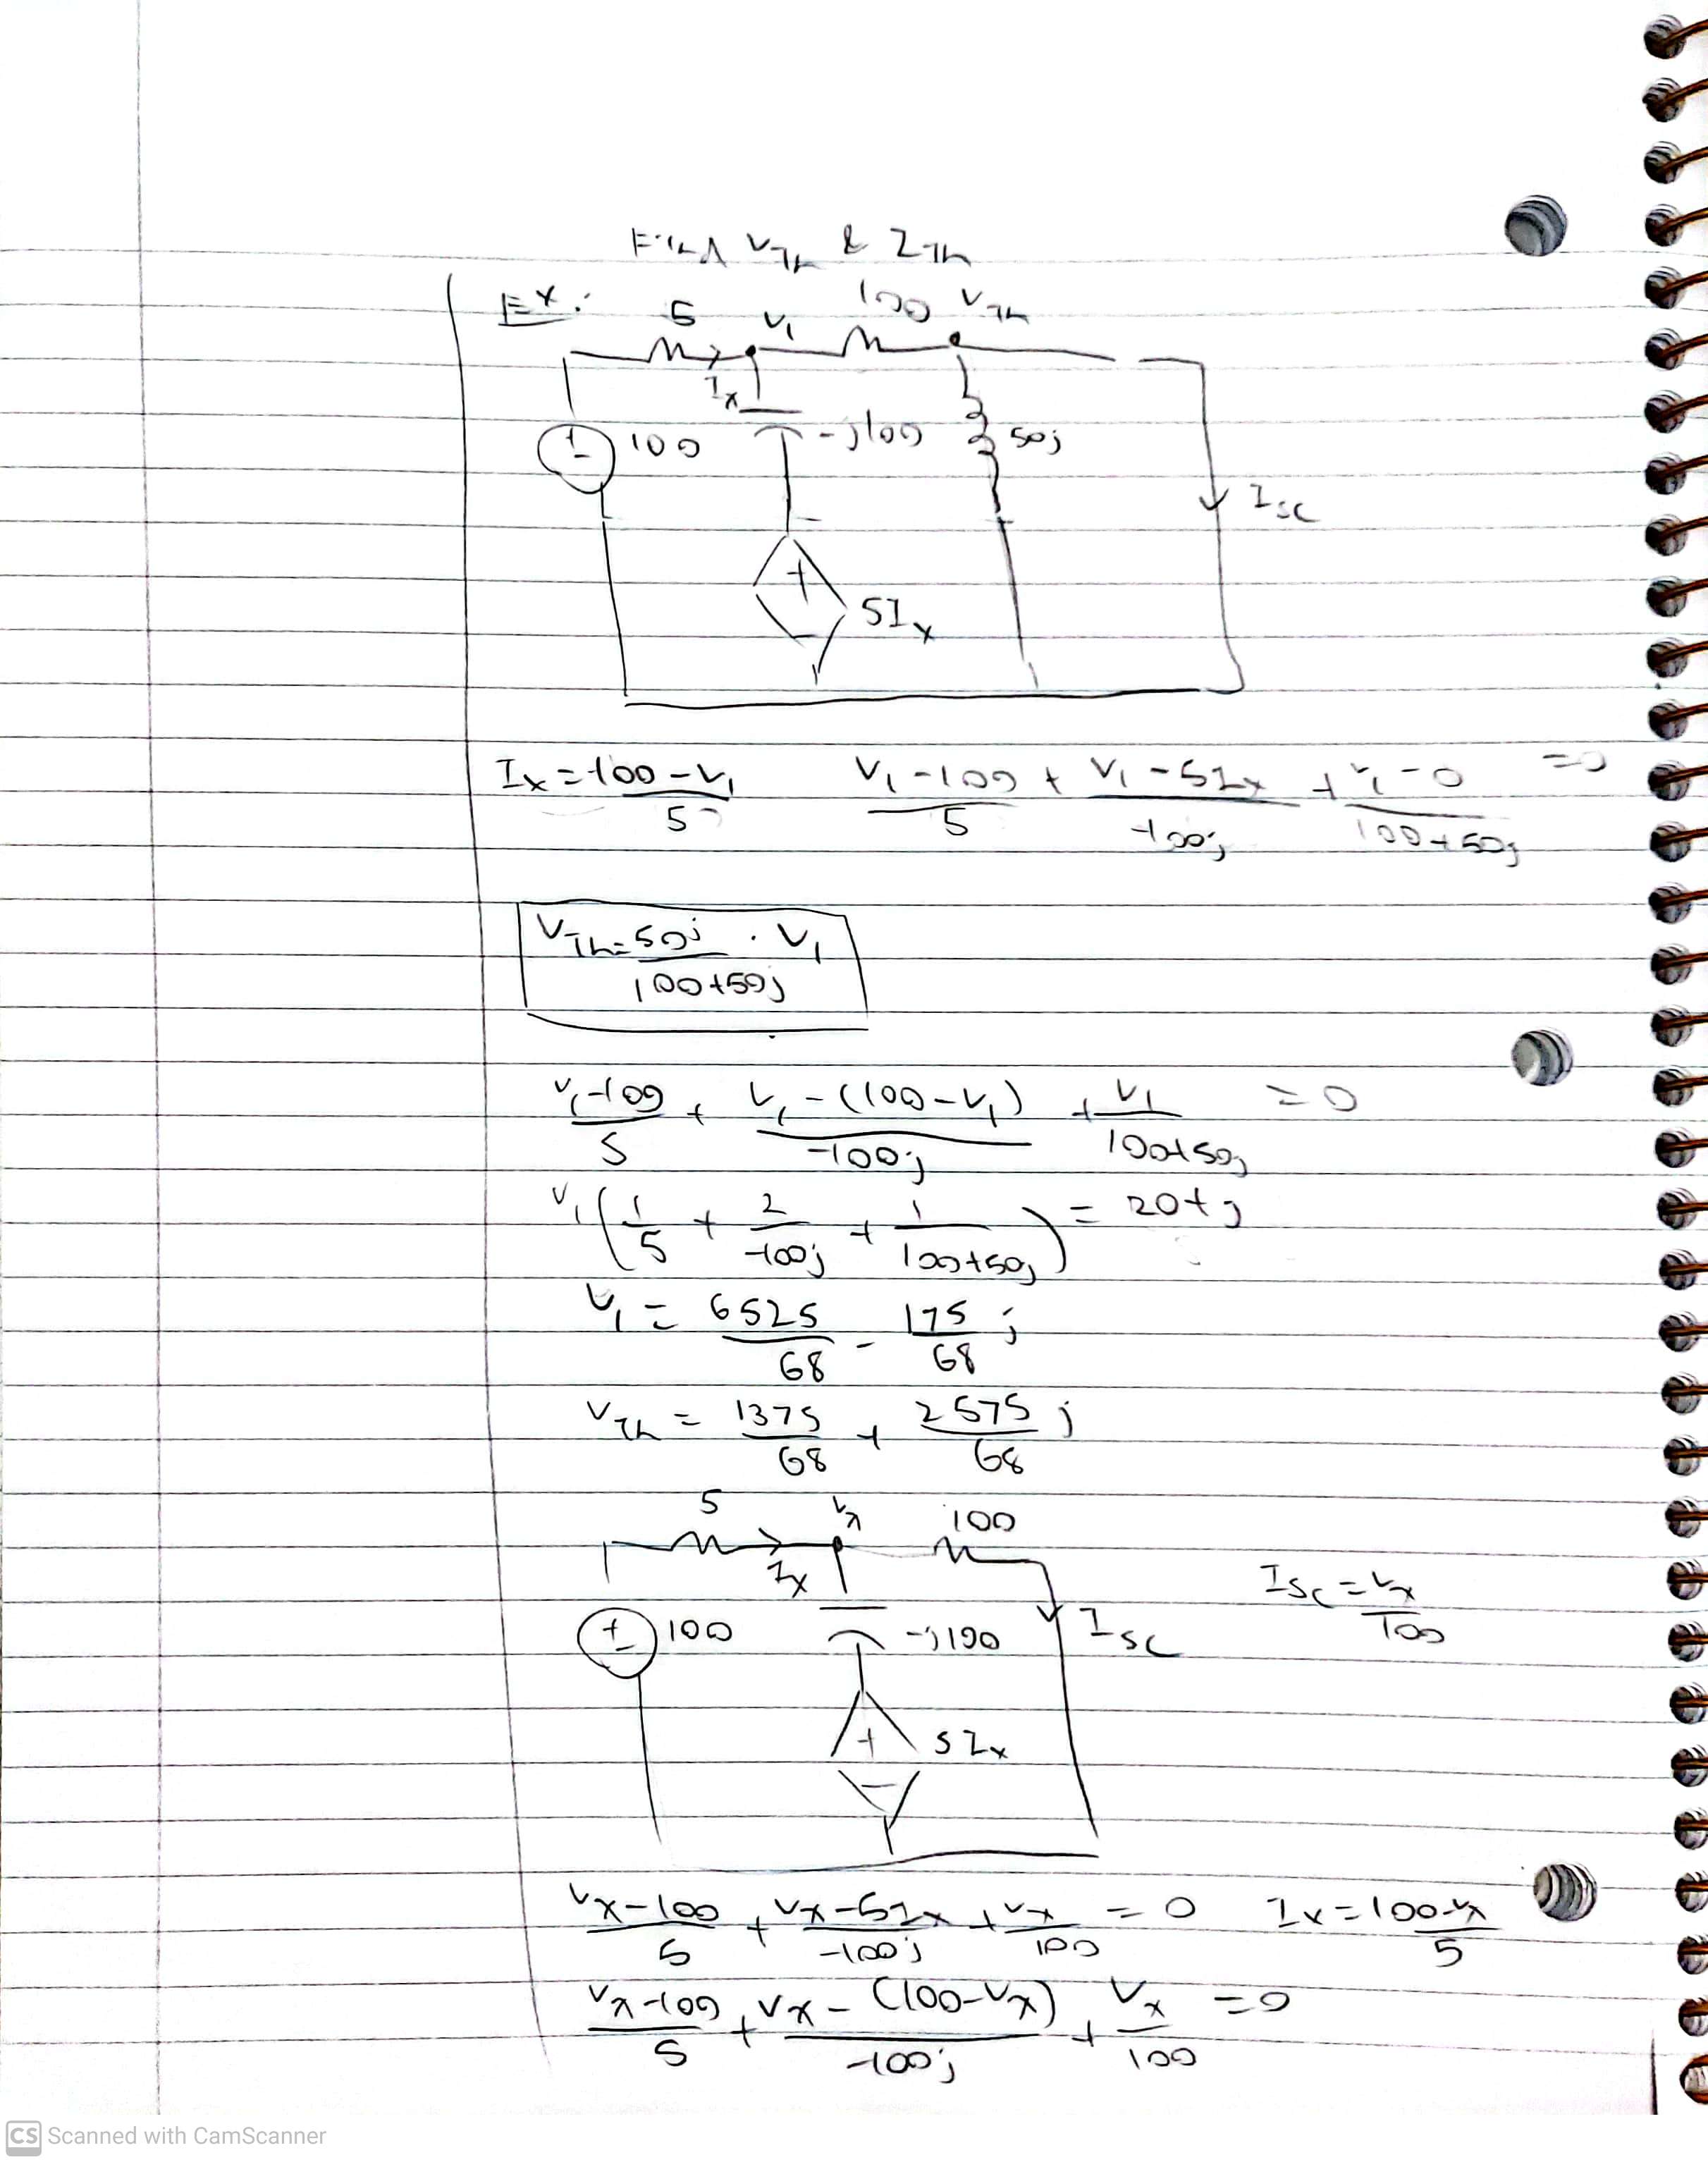 Find VTh & ZTh
Ex:
5 V1 100 VTh
Ix
+ - 100 -j100 50j
Isc
+ - 5Ix
Ix = 100-V1 / 5    V1-100 / 5 + V1-5Ix / -100j + V1-0 / 100+50j = 0
VTh = 50j / 100+50j · V1
V1-100 / 5 + V1-(100-V1) / -100j + V1 / 100+50j = 0
V1 ( 1/5 + 2/-100j + 1/100+50j ) = 20+j
V1 = 6525/68 - 175/68 j
VTh = 1375/68 + 2575/68 j
5 Vx 100
Ix
Isc = Vx/100
+ - 100 -j100 Isc
+ - 5Ix
Vx-100 / 5 + Vx-5Ix / -100j + Vx / 100 = 0    Ix = 100-Vx / 5
Vx-100 / 5 + Vx-(100-Vx) / -100j + Vx / 100 = 0
CS Scanned with CamScanner